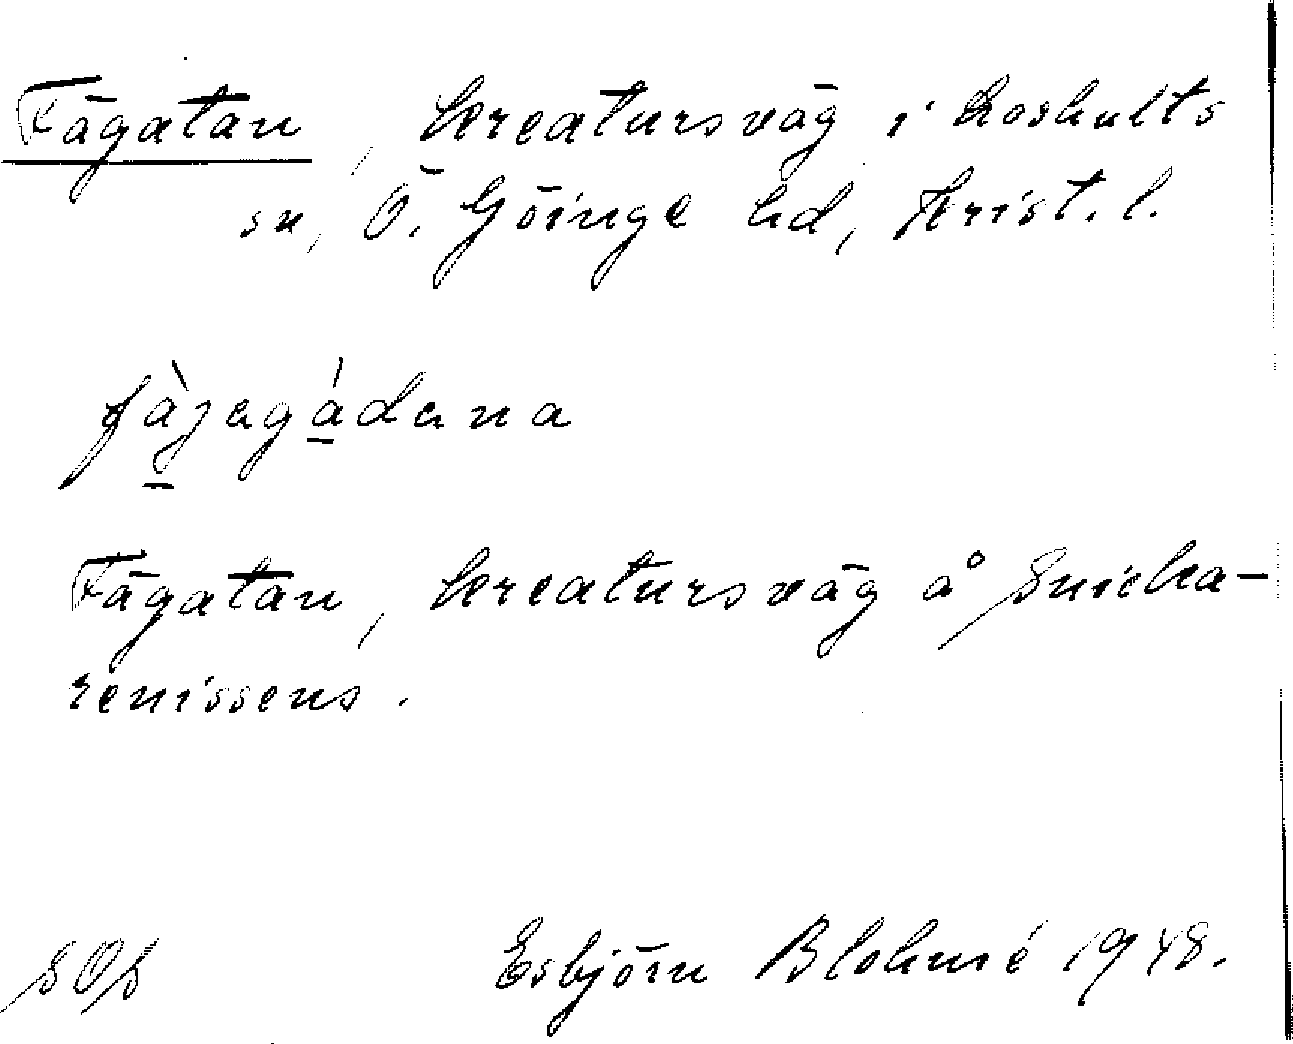 Fägatan, kreatursväg i Loshults
sn, Ö. Göinge hd, Krist. l.
fàjegádena
Fägatan, kreatursväg å Snicka-
renissens.
SOS Esbjörn Blohmé 1948.